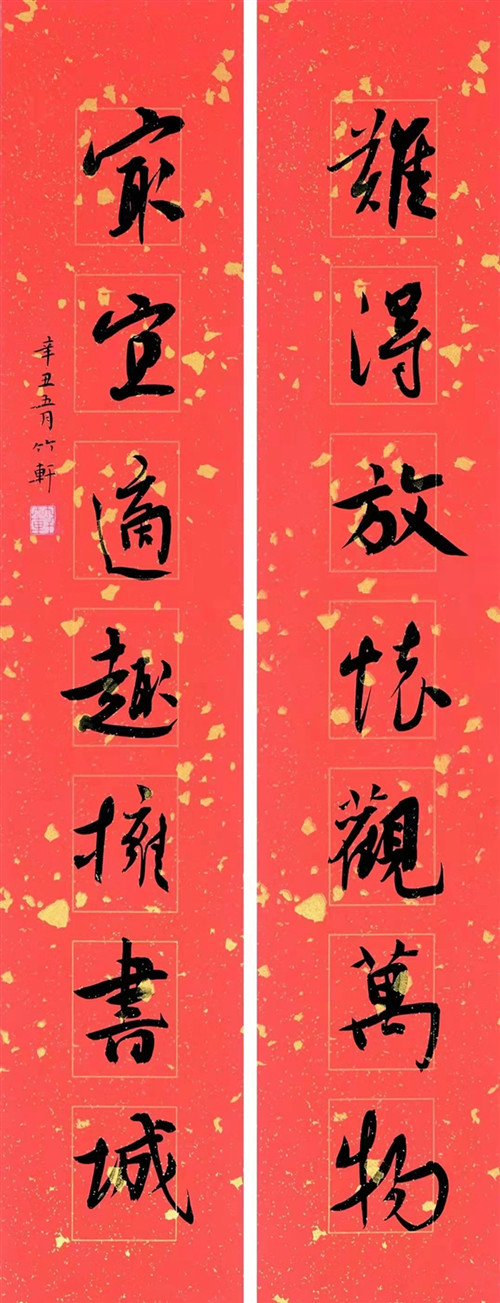 難得放懷觀萬物
冣宜適趣擁書城
辛丑五月竹軒